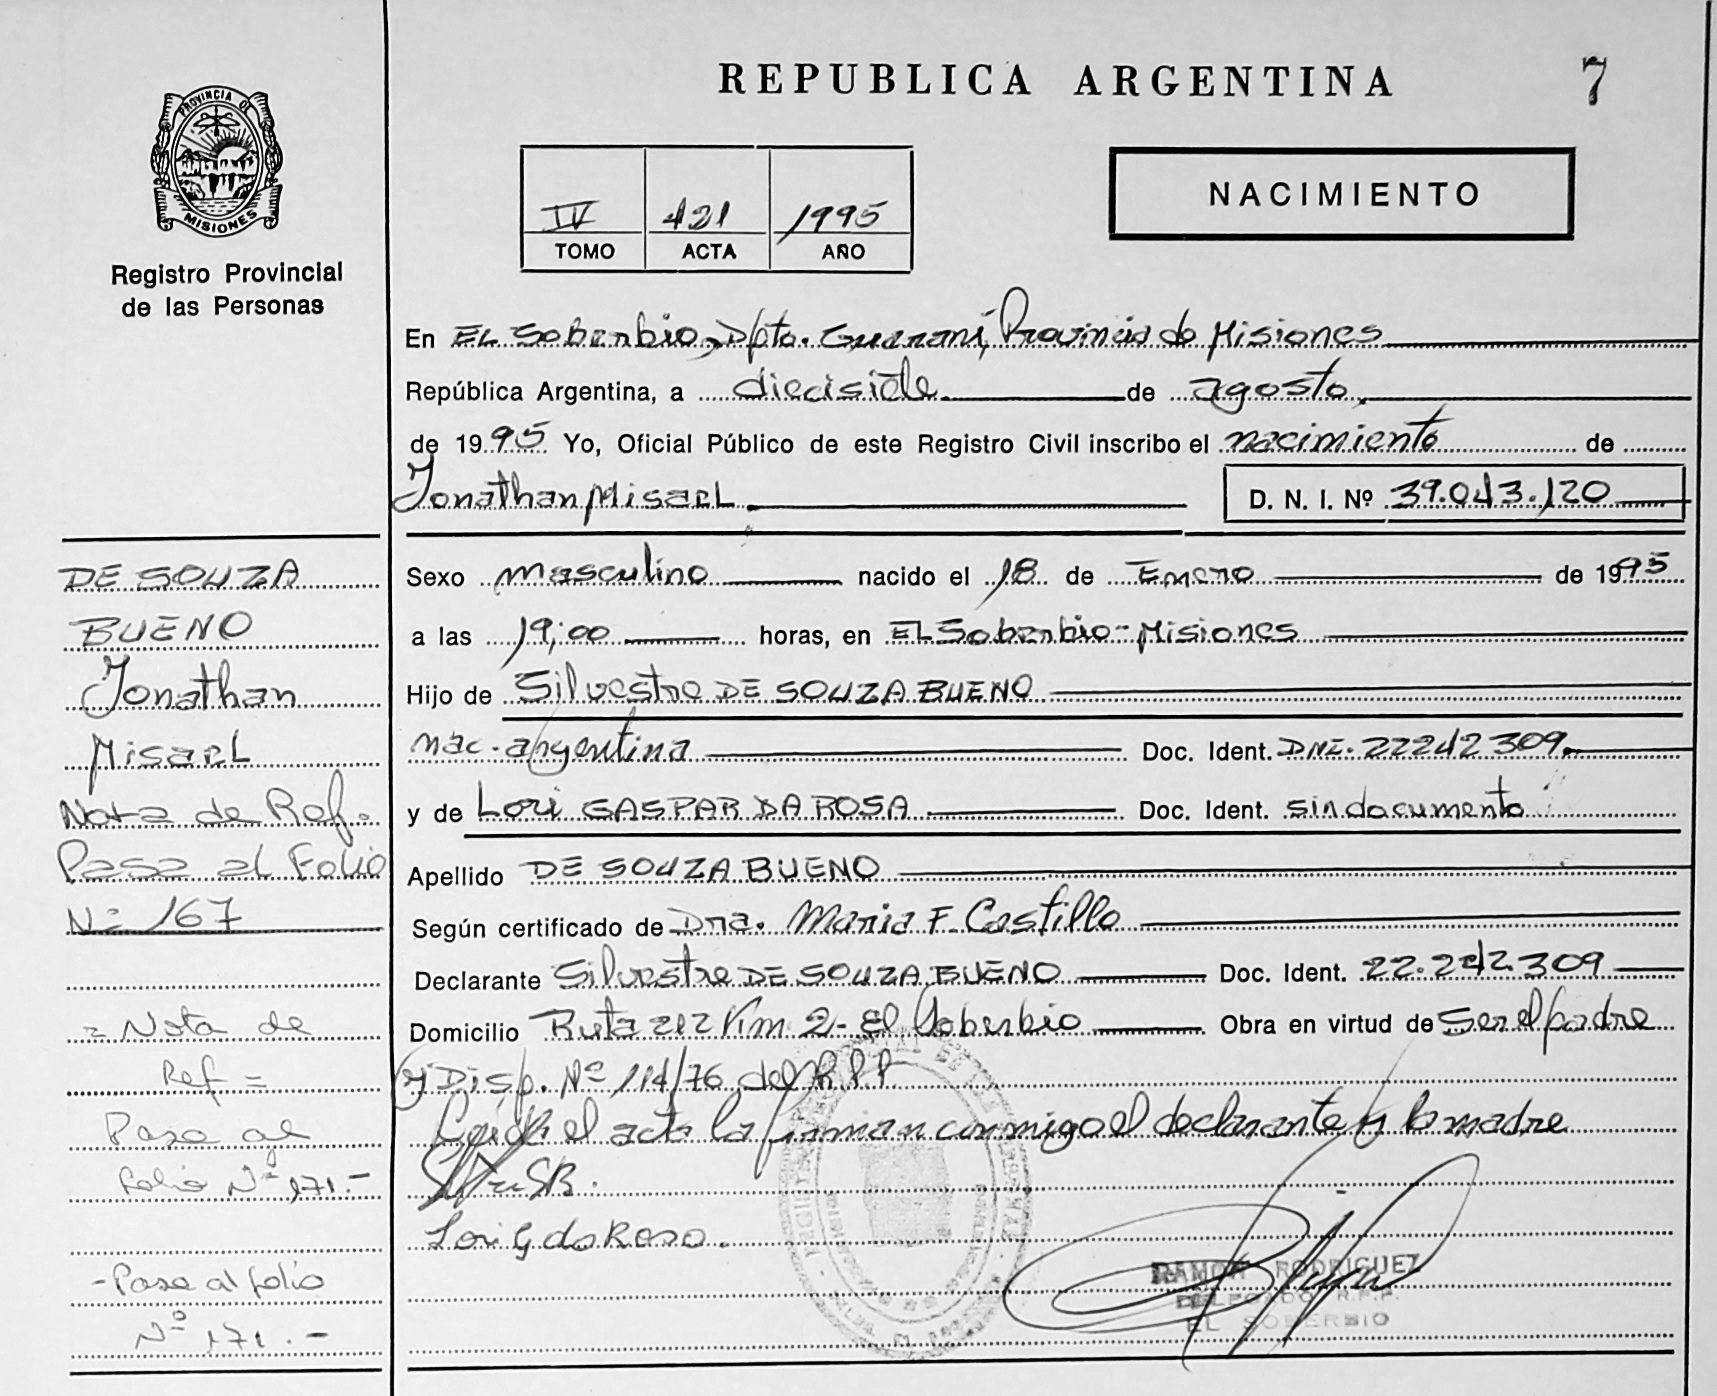 REPUBLICA ARGENTINA
7
PROVINCIA DE
MISIONES
Registro Provincial
de las Personas
IV 421 1995
TOMO ACTA AÑO
NACIMIENTO
En EL Soberbio, Dpto. Guaraní, Provincia de Misiones
República Argentina, a diecisiete de agosto,
de 1995 Yo, Oficial Público de este Registro Civil inscribo el nacimiento de
Jonathan Misael D. N. I. Nº 39.043.120
Sexo masculino nacido el 18 de Enero de 1995
a las 19:00 horas, en EL Soberbio - Misiones
Hijo de Silvestre DE SOUZA BUENO
nac. argentina Doc. Ident. DNI. 22242309
y de Lori GASPAR DA ROSA Doc. Ident. sin documento
Apellido DE SOUZA BUENO
Según certificado de Dra. Maria F. Castillo
Declarante Silvestre DE SOUZA BUENO Doc. Ident. 22.242.309
Domicilio Ruta 212 Km. 2 - El Soberbio Obra en virtud de Ser el padre
y Disp. Nº 114/76 del R.P.P
Leída el acta la firman conmigo el declarante y la madre
Lori G da Rosa.
RAMON RODRIGUEZ
DELEGADO R.P.P.
EL SOBERBIO
DE SOUZA
BUENO
Jonathan
Misael
Nota de Ref.
Pasa al Folio
Nº 167
= Nota de
Ref =
Pasa al
folio Nº 171.-
- Pasa al folio
Nº 171.-